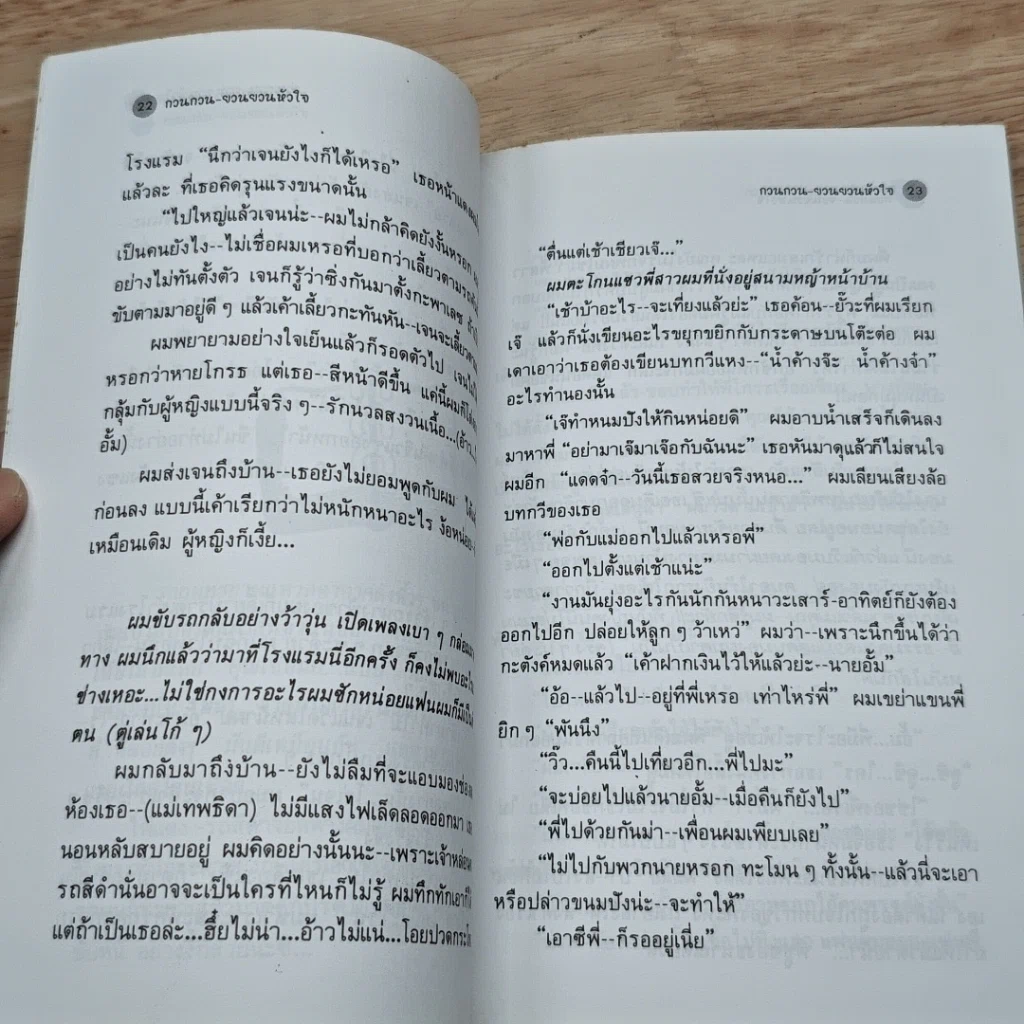 22 กวนกวน-ยวนยวนหัวใจ
โรงแรม “นึกว่าเจนยังไงก็ได้เหรอ” เธอหน้าแดง
แล้วละ ที่เธอคิดรุนแรงขนาดนั้น
“ไปใหญ่แล้วเจนน่ะ--ผมไม่กล้าคิดยังงั้นหรอก
เป็นคนยังไง--ไม่เชื่อผมเหรอที่บอกว่าเลี้ยวตามรถ
อย่างไม่ทันตั้งตัว เจนก็รู้ว่าซิ่งกันมาตั้งกะพาเลซ
ขับตามมาอยู่ดี ๆ แล้วเค้าเลี้ยวกะทันหัน--เจนจะเลี้ยว
ผมพยายามอย่างใจเย็นแล้วก็รอดตัวไป เจน
หรอกว่าหายโกรธ แต่เธอ--สีหน้าดีขึ้น แค่นี้ผมก็
กลุ้มกับผู้หญิงแบบนี้จริง ๆ--รักนวลสงวนเนื้อ...(อ้าว
อั้ม)
ผมส่งเจนถึงบ้าน--เธอยังไม่ยอมพูดกับผม
ก่อนลง แบบนี้เค้าเรียกว่าไม่หนักหนาอะไร ง้อหน่อย
เหมือนเดิม ผู้หญิงก็เงี้ย...
ผมขับรถกลับอย่างว้าวุ่น เปิดเพลงเบา ๆ กล่อม
ทาง ผมนึกแล้วว่ามาที่โรงแรมนี่อีกครั้ง ก็คงไม่พบอะไร
ช่างเหอะ...ไม่ใช่กงการอะไรผมซักหน่อยแฟนผมก็มี
ตน (ตู่เล่นโก้ ๆ)
ผมกลับมาถึงบ้าน--ยังไม่ลืมที่จะแอบมอง
ห้องเธอ--(แม่เทพธิดา) ไม่มีแสงไฟเล็ดลอดออกมา
นอนหลับสบายอยู่ ผมคิดอย่างนั้นนะ--เพราะเจ้าหล่อน
รถสีดำนั่นอาจจะเป็นใครที่ไหนก็ไม่รู้ ผมทึกทักเอา
แต่ถ้าเป็นเธอล่ะ...ฮึ๊ยไม่น่า...อ้าวไม่แน่...โอยปวด
กวนกวน-ยวนยวนหัวใจ 23
“ตื่นแต่เช้าเชียวเจ๊...”
ผมตะโกนแซวพี่สาวผมที่นั่งอยู่สนามหญ้าหน้าบ้าน
“เช้าบ้าอะไร--จะเที่ยงแล้วย่ะ” เธอค้อน--ยั๊วะที่ผมเรียก
เจ๊ แล้วก็นั่งเขียนอะไรขยุกขยิกกับกระดาษบนโต๊ะต่อ ผม
เดาเอาว่าเธอต้องเขียนบทกวีแหง--“น้ำค้างจ๊ะ น้ำค้างจ๋า”
อะไรทำนองนั้น
“เจ๊ทำหนมปังให้กินหน่อยดิ” ผมอาบน้ำเสร็จก็เดินลง
มาหาพี่ “อย่ามาเจ๊มาเจ๋อกับฉันนะ” เธอหันมาดุแล้วก็ไม่สนใจ
ผมอีก “แดดจ๋า--วันนี้เธอสวยจริงหนอ...” ผมเลียนเสียงล้อ
บทกวีของเธอ
“พ่อกับแม่ออกไปแล้วเหรอพี่”
“ออกไปตั้งแต่เช้าแน่ะ”
“งานมันยุ่งอะไรกันนักกันหนาวะเสาร์-อาทิตย์ก็ยังต้อง
ออกไปอีก ปล่อยให้ลูก ๆ ว้าเหว่” ผมว่า--เพราะนึกขึ้นได้ว่า
กะตังค์หมดแล้ว “เค้าฝากเงินไว้ให้แล้วย่ะ--นายอั้ม”
“อ้อ--แล้วไป--อยู่ที่พี่เหรอ เท่าไหร่พี่” ผมเขย่าแขนพี่
ยิก ๆ “พันนึง”
“วิ๊ว...คืนนี้ไปเที่ยวอีก...พี่ไปมะ”
“จะบ่อยไปแล้วนายอั้ม--เมื่อคืนก็ยังไป”
“พี่ไปด้วยกันม่า--เพื่อนผมเพียบเลย”
“ไม่ไปกับพวกนายหรอก ทะโมน ๆ ทั้งนั้น--แล้วนี่จะเอา
หรือปล่าวขนมปังน่ะ--จะทำให้”
“เอาซีพี่--ก็รออยู่เนี่ย”